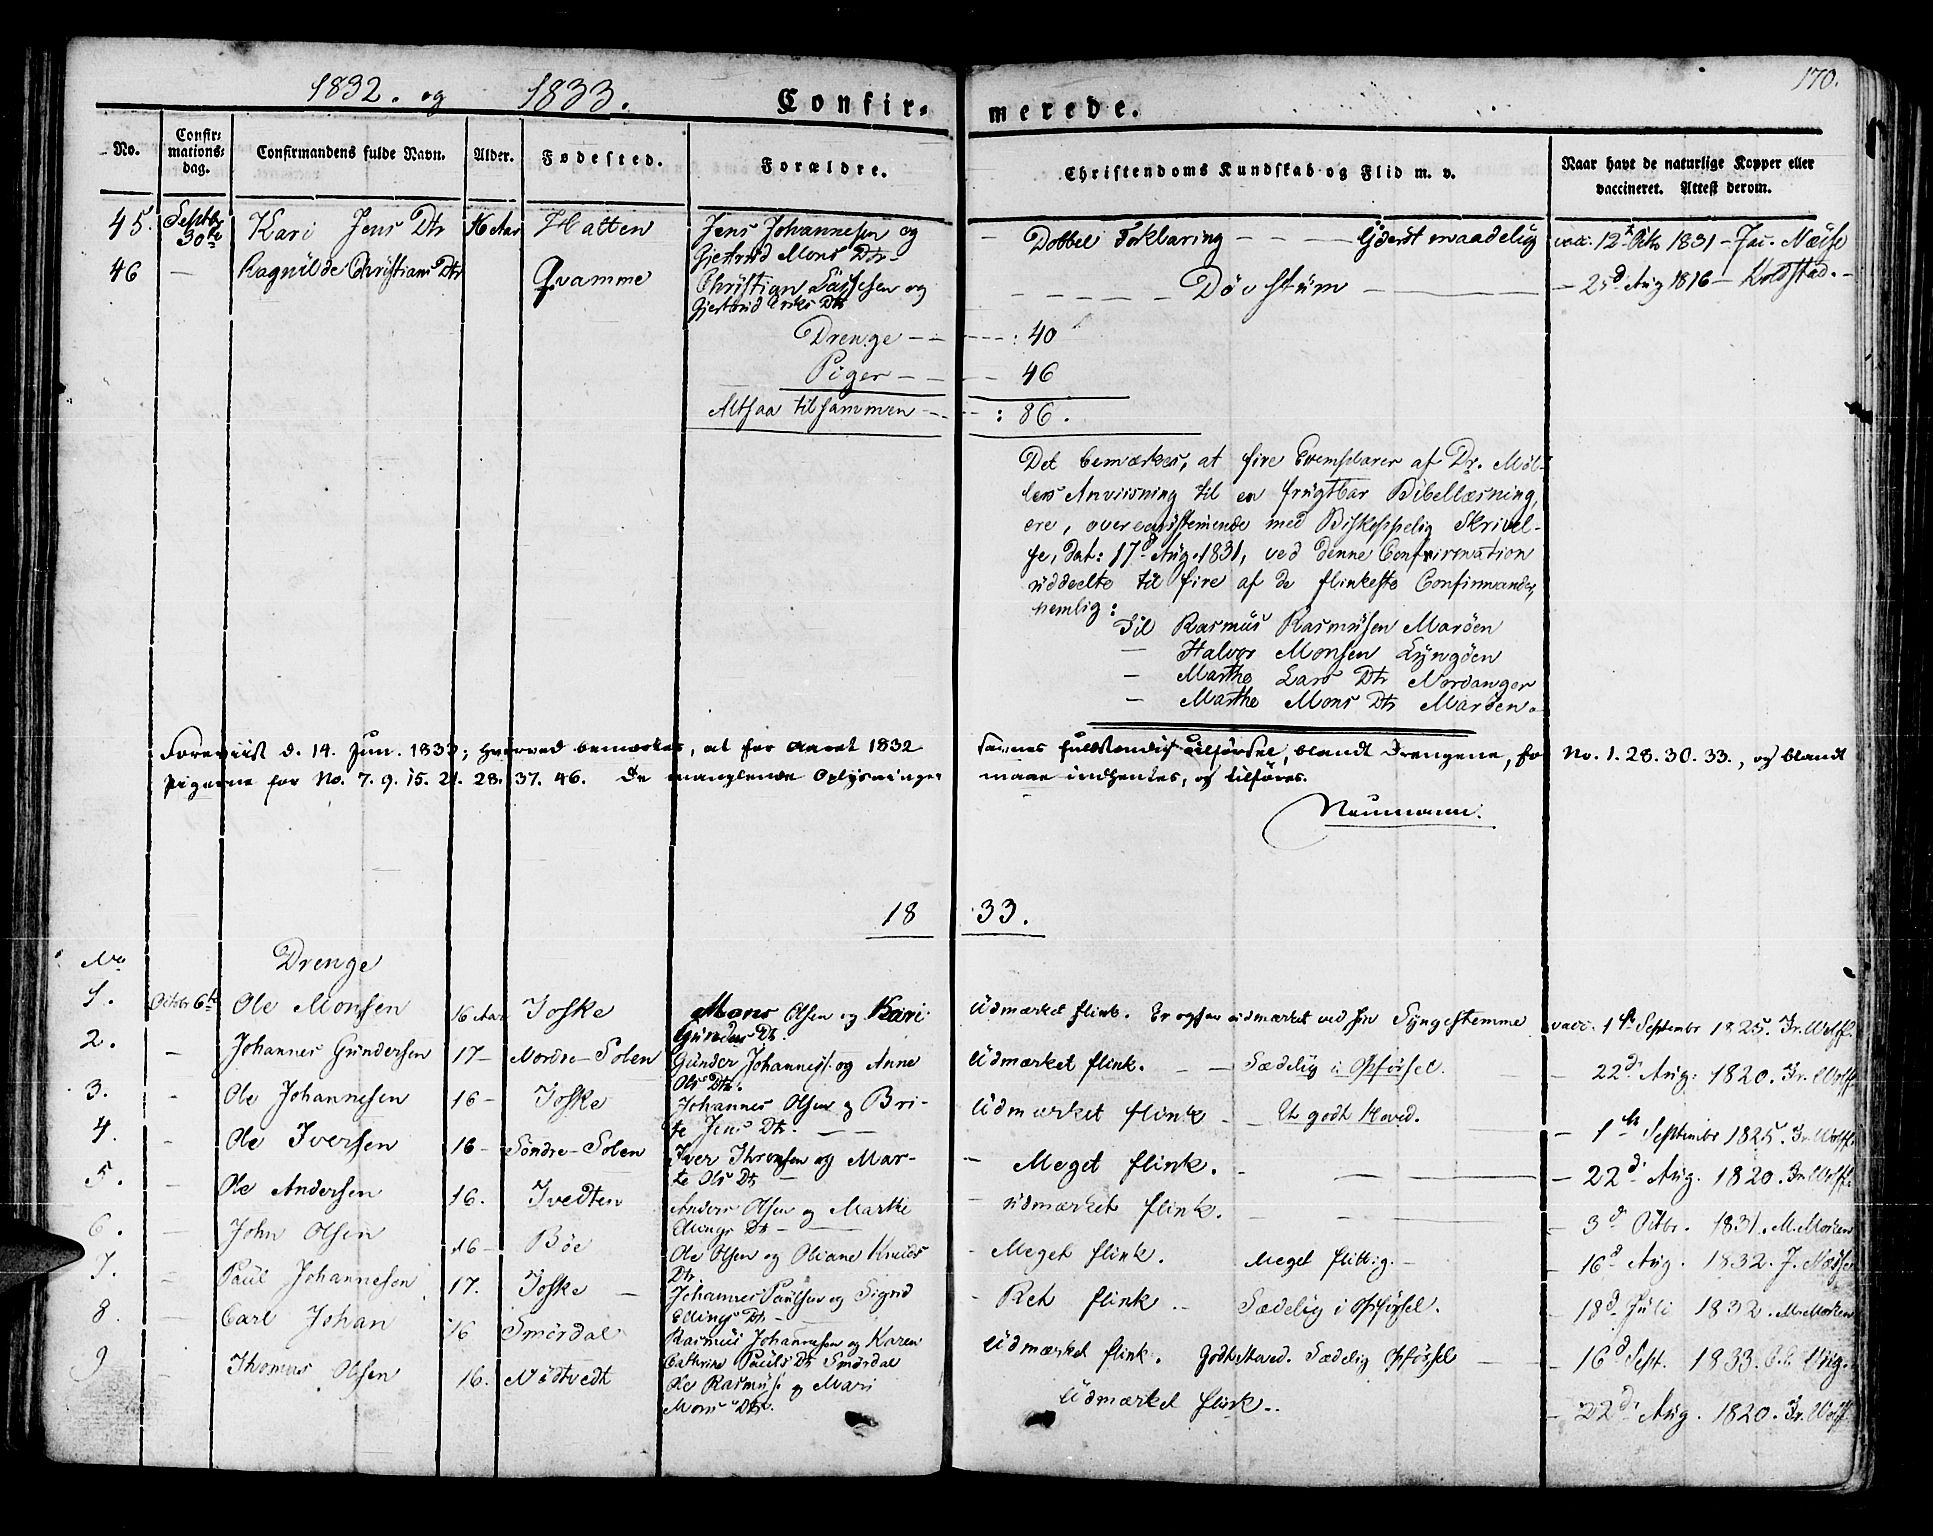 170.
1832. og 1833. Confirmerede.
No. Confirmationsdag. Confirmandens fulde Navn. Alder. Fødested. Forældre. Christendoms Kundskab og Flid m. v. Naar havt de naturlige Kopper eller vaccineret. Attest derom.
45. Septbr 30te Kari Jens Dtr 16 Aar Hatten Jens Johannesen og Gjertrud Mons Dtr Dobbel Forklaring - - - Yderst maadelig vacc. 12te Octbr 1831 - Jac. Næse
46 - Ragnilde Christians Dtr Qvamme Christian og Gjertrud Dtr - - - Døvstum - 25d Aug 1816 - Koldstad. -
Drenge - - - - : 40
Piger - - - - 46
Altsaa tilsammen - - - : 86.
Det bemærkes, at fire Exemplarer af Dr. Møl-
lers Anviisning til en frugtbar Bibellæsning,
ere, overeensstemmende med Biskoppelig Skrivel-
se, Dat: 17d Aug. 1831, ved denne Confirmation
uddeelte til fire af de flinkeste Confirmander,
nemlig:
Til Rasmus Rasmusen Marøen
- Halvor Monsen Lyngøen
- Marthe Lars Dtr Nordanger
- Marthe Mons Dtr Marøen.
Foreviist d. 14. Jun. 1833; hvorved bemærkes, at for Aaret 1832 savnes fuldstændig Tilførsel, blandt Drengene, for No. 1. 28. 30. 33., og blandt
Pigerne for No. 7. 9. 15. 21. 28. 37. 46. De manglende Oplysninger maae indhentes, og tilføres.
Neumann.
1833.
No Drenge
1. Octobr 6te Ole Monsen 16 Aar Joske Mons Olsen og Kari Gunders Dtr. Udmærket flink. Er ogsaa udmærket ved sin Syngestemme vacc. 1ste Septembr 1825. Fr. Wolff.
2. - Johannes Gundersen 17 - Nordre-Solen Gunder Johanness. og Anne Ols Dtr. Udmærket flink. - - Sædelig i Opførsel. - 22d Aug: 1820. Fr. Wolff
3. - Ole Johannesen 16 - Joske Johannes Olsen og Bri-te Jens Dtr. - Udmærket flink - - Et godt Hoved. - 1ste Septembr 1825. Fr. Wolff.
4. - Ole Iversen 16 - Søndre-Solen Iver Thronsen og Mar-te Ols Dtr - - Meget flink. - - 22d Aug. 1820. Fr. Wolff.
5. - Ole Andersen 16. Tvedten Anders Olsen og Marthe Dtr - - udmærket flink. - - 3d Octbr. 1831. M. Morken
6. - John Olsen 16 - Bøe Ole Olsen og Oliane Knuds Dtr. - Meget flink. Meget flittig. - - 16d Aug. 1832. J. Næse
7. - Paul Johannesen 17. Joske - Johannes Paulsen og Sigrid Ellings Dtr - - Ret flink - Sædelig i Opførsel. - 18d Juli 1832. M. Morken
8. - Carl Johan 16 Smørdal Rasmus Johannesen og Karen Cathrine Pauls Dtr Smørdal Udmærket flink. Godt Hoved. Sædelig Opførsel - - 16d Sept. 1833.
9 - Thomas Olsen 16. Mødtvedt Ole Rasmus. og Mari Mons Dtr. Udmærket flink. - 22d Aug. 1820. Fr. Wolff